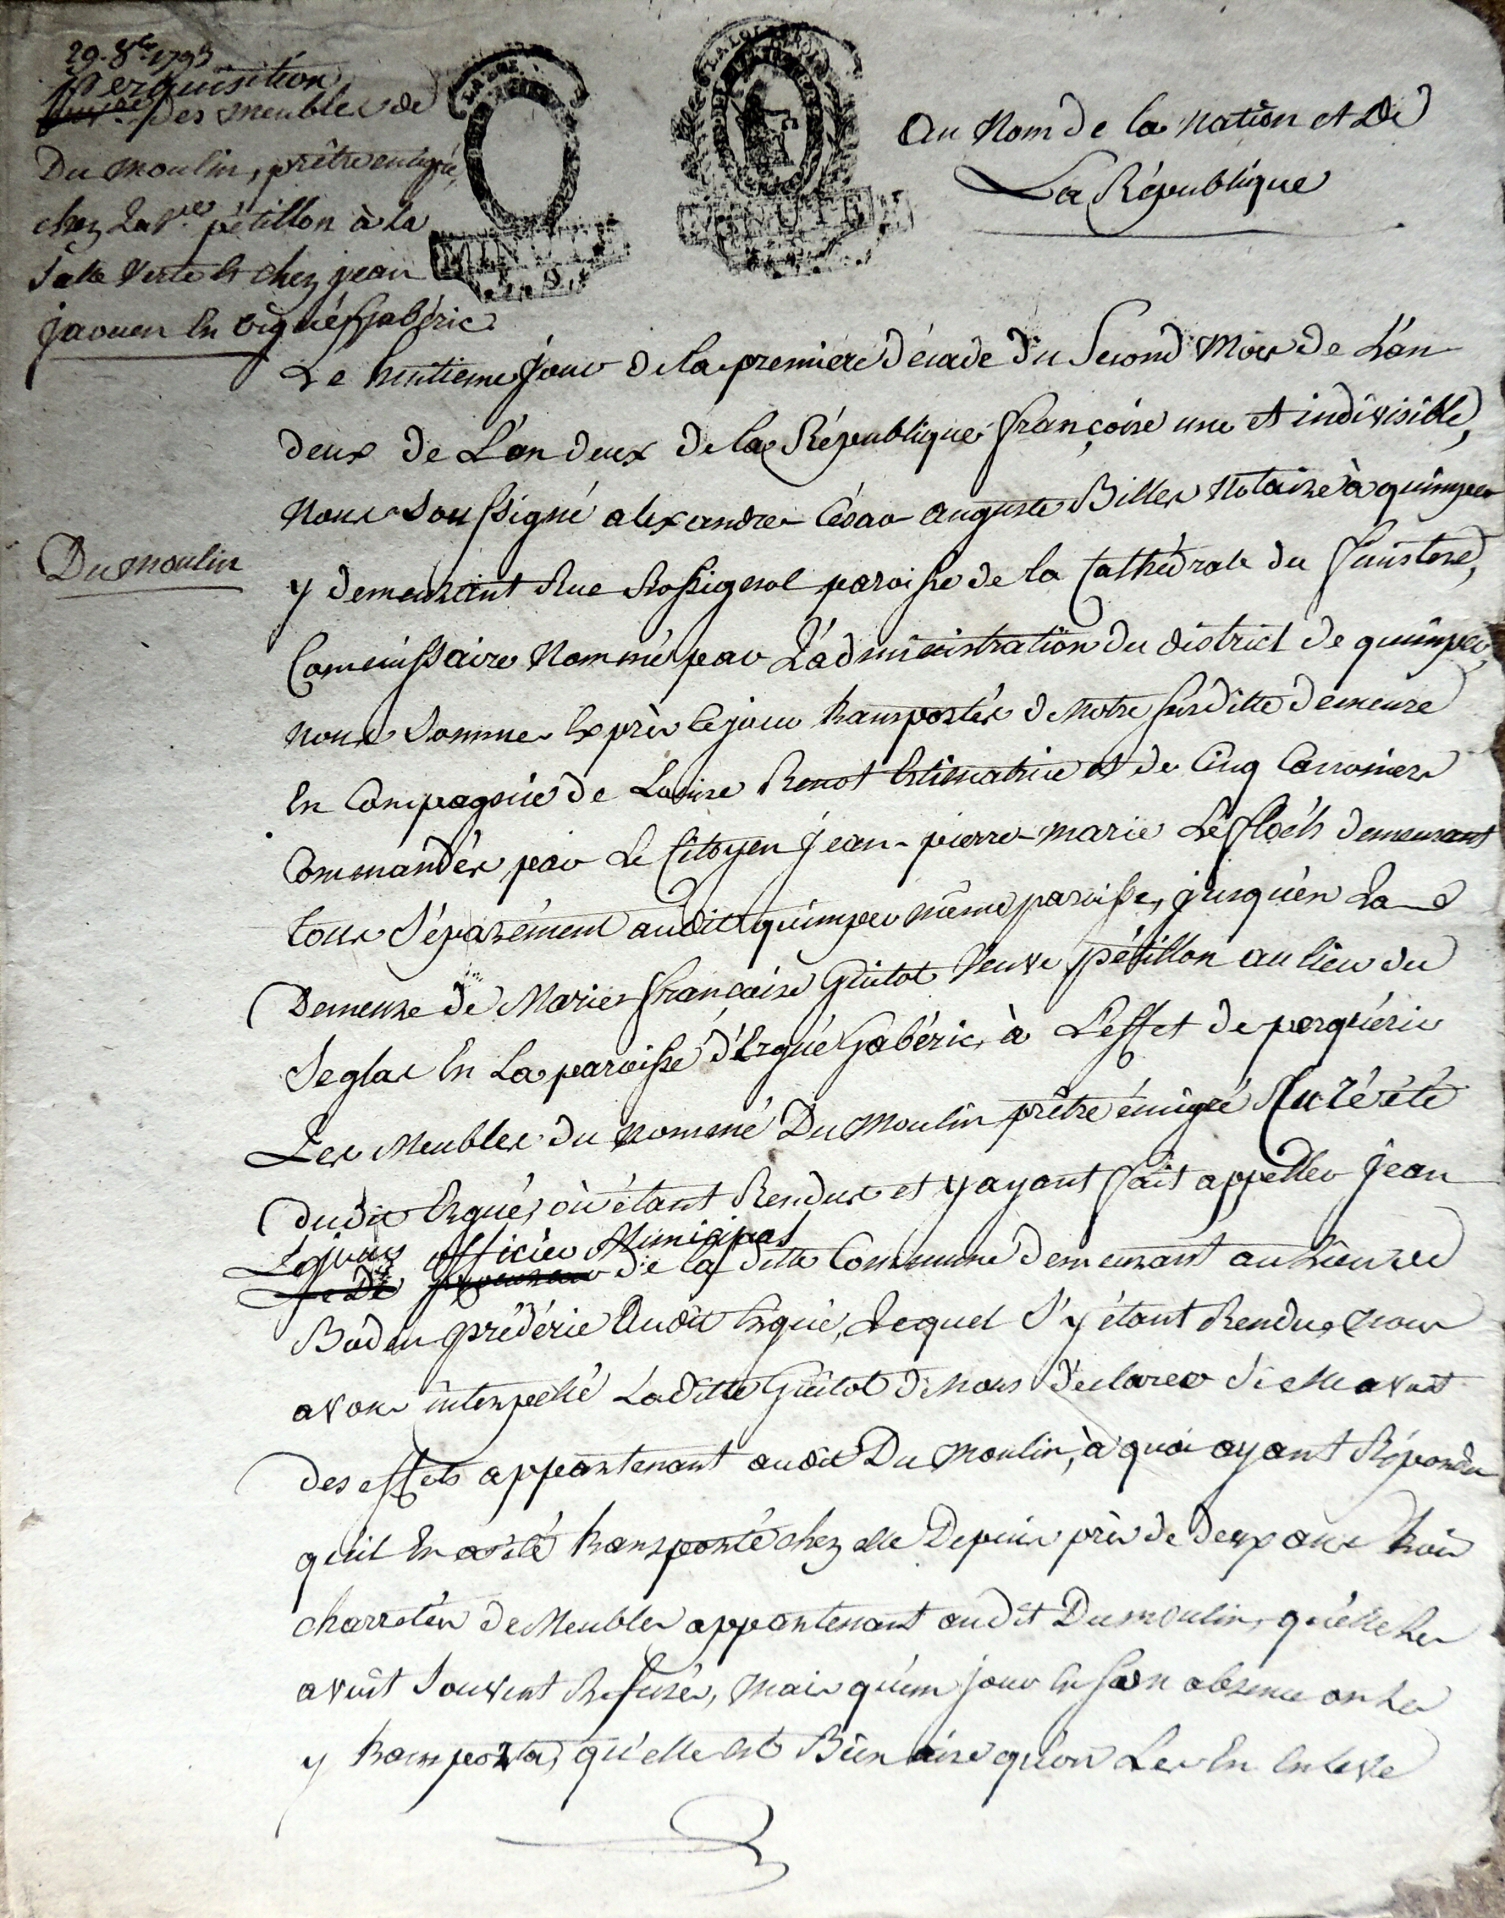 29. 8bre 1793
Perquisition
des meubles de
Du moulin, prêtre émigré,
chez la Ve. pétillon à la
Salle verte & chez jean
jaouen En ergué gabéric
LA LOI
MINUTE
MINUTE
Au Nom de la Nation et De
La République
Le huitieme jour de la premiere décade du Second Mois de L'an
deux de L'an deux de la République françoise une et indivisible,
Nous Soussigné alexandre César auguste Biller Notaire à quimper
Du moulin
y demeurant Rue Rossignol paroisse de la Cathédrale du finistere,
Commissaire Nommé par L'administration du district de quimper,
Nous Somme Exprès Ce jour transportés de Notre susditte demeure
En Compagnie de Louise Renot Estimatrice et de Cinq Canoniers
Commandés par Le Citoyen Jean-pierre-marie Le floch demeurant
tous Séparément audit quimper même paroisse, jusqu'en La
Demeure de Marie françoise Guitot Veuve pétillon au lieu du
Seglas En La paroisse d'Ergué Gabéric, à L'effet de perquérir
Les Meubles du nommé Du Moulin prêtre émigré
dudit Ergué, où étant Rendus et y ayant fait appeller Jean
officier Municipal
de la ditte Commune demeurant au lieu de
Boden prédéric Audit Ergué, Lequel S'y étant Rendu, nous
avons interpellé Laditte Guitot de Nous déclarer si elle avoit
des effets appartenant audit Du Moulin, à quoi ayant Répondu
qu'il En a été transporté chez elle Depuis près de deux ans trois
charretés de Meubles appartenant audit Dumoulin, qu'elle les
avoit Souvent Refusés, mais qu'un jour En son absence on les
y transporta, qu'elle est Bien aise qu'on Les En Enleve